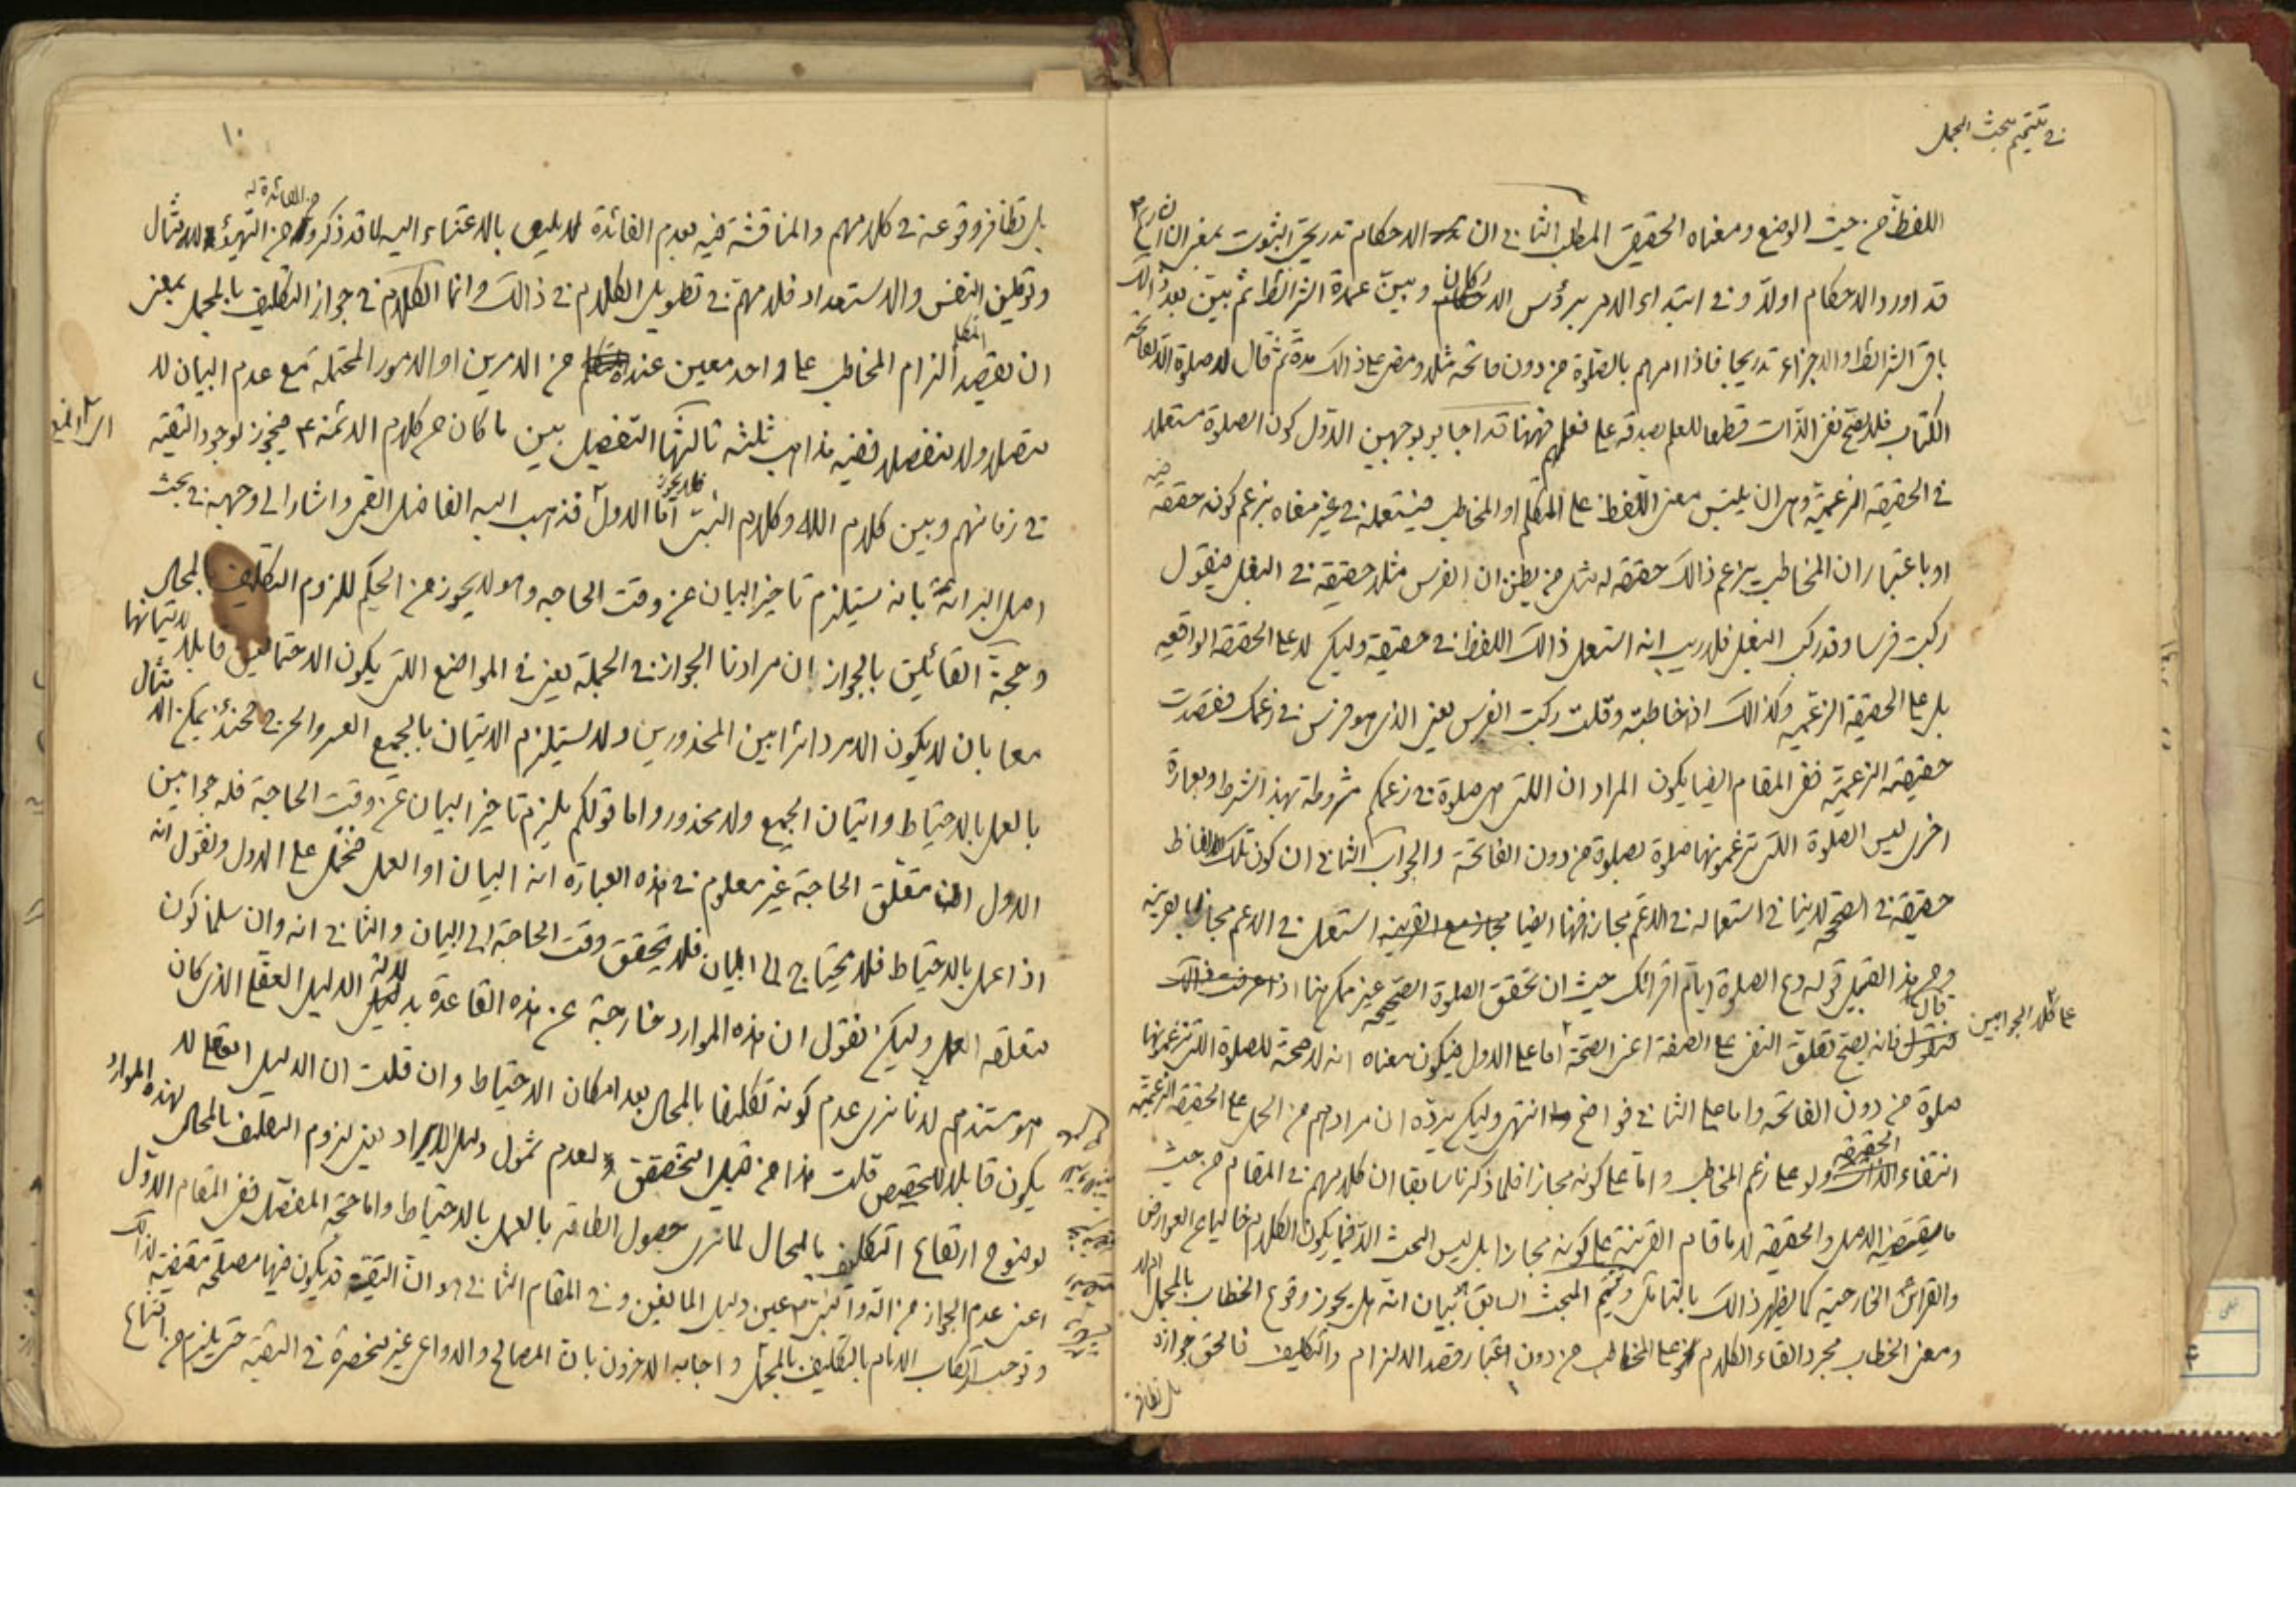 في تتميم مبحث المجمل
اللفظ من حيث الوضع ومعناه الحقيقي المطلب الثاني ان الاحكام تدريجي الثبوت بمعنى ان الشارع
قد اورد الاحكام اولا وفي ابتداء الامر برؤس الاركان وبين عمدة الشرائط ثم بين بعد ذالك
باقي الشرائط والاجزاء تدريجا فاذا امرهم بالصلوة من دون فاتحة مثلا ومضى على ذالك مدة ثم قال لا صلوة الا بفاتحة
الكتاب فلا يصح نفي الذات قطعا للعلم بصدقه على فعلهم فههنا قد اجابو بوجهين الاول كون الصلوة مستعملا
في الحقيقة الزعمية وهي ان يلتبس معنى اللفظ على المتكلم او المخاطب فيستعمله في غير معناه بزعم كونه حقيقة فيه
او باعتبار ان المخاطب يزعم ذالك حقيقة له مثل من يظن ان الفرس مثلا حقيقة في البغل فيقول
ركبت فرسا وقد ركب البغل فلا ريب انه استعمل ذالك اللفظ في حقيقة وليكم لا على الحقيقة الواقعيه
بل على الحقيقة الزعميه وكذالك اذا خاطبته وقلت ركبت الفرس يعني الذي هو فرس في زعمك فقصدت
حقيقة الزعمية ففي المقام ايضا يكون المراد ان اللتي هي صلوة في زعمكم مشروطة بهذا الشرط وبعبارة
اخرى ليس الصلوة اللتي تزعمونها صلوة بصلوة من دون الفاتحة والجواب الثاني ان كون تلك الالفاظ
حقيقة في الصحيح لا ينافي استعماله في الاعم مجازا فههنا ايضا استعمل في الاعم مجازا بالقرينة
ومن هذا القبيل قوله دع الصلوة ايام اقرائك حيث ان تحقق الصلوة الصحيحه غير ممكن هنا
على كلا الجوابين
قال فانه يصح تعلق النفي على الصفة اعني الصحة اما على الاول فيكون معناه انه لا صحة للصلوة اللتي تزعمونها
صلوة من دون الفاتحة واما على الثاني فواضح انتهى وليكم يرده ان مرادهم من الحمل على الحقيقة الزعمية
انتفاء الحقيقة ولو على زعم المخاطب واما على كونه مجازا فلما ذكرنا سابقا ان كلامهم في المقام من حيث
ما يقتضيه الاصل والحقيقة لا ما قام القرينة على كونه مجازا بل ليس البحث الا فيما يكون الكلام خاليا عن العوارض
والقرائن الخارجية كما يظهر ذالك بالتامل وتتميم المبحث السابق ببيان انه هل يجوز وقوع الخطاب بالمجمل ام لا
ومعنى الخطاب مجرد القاء الكلام على المخاطب من دون اعتبار قصد الالزام والتكليف فالحق جوازه
بل تظافر
١٠
بل تظافر وقوعه في كلامهم والمناقشة فيه بعدم الفائدة لا يليق بالاعتناء اليه لما قد ذكروا من الفائدة له من التهيؤ للامتثال
وتوطين النفس والاستعداد فلا مهمة في تطويل الكلام في ذالك وانما الكلام في جواز التكليف بالمجمل بمعنى
ان يقصد المتكلم الزام المخاطب على واحد معين عنده من الامرين او الامور المحتمله مع عدم البيان لا
متصلا ولا منفصلا ففيه مذاهب ثلثة ثالثها التفصيل بين ما كان من كلام الائمة ع فيجوز لوجود التقيه
في زمانهم وبين كلام الله وكلام النبي فلا يجوز اما الاول فذهب اليه الفاضل القمي واشار الى وجهه في بحث
اصل البرائة بانه يستلزم تاخير البيان عن وقت الحاجه وهو لا يجوز من الحكيم للزوم التكليف بالمحال
وحجة القائلين بالجواز ان مرادنا الجواز في الجملة يعني في المواضع اللتي يكون الاحتمالين قابلا لاتيانها
معا بان لا يكون الامر دائرا بين المحذورين ولا يستلزم الاتيان بالجميع العسر والحرج فحينئذ يمكن الامتثال
بالعمل بالاحتياط واتيان الجميع ولا محذور واما قولكم يلزم تاخير البيان عن وقت الحاجة فله جوابين
الاول ان متعلق الحاجة غير معلوم في هذه العبارة انه البيان او العمل فنحمل على الاول ونقول انه
اذا عمل بالاحتياط فلا يحتاج الى البيان فلا يتحقق وقت الحاجة الى البيان والثاني انه وان سلمنا كون
متعلقه العمل وليكم نقول ان هذه الموارد خارجة عن هذه القاعدة بدلالة الدليل العقلي الذي كان
هو مستندهم لانا نرى عدم كونه تكليفا بالمحال بعد امكان الاحتياط وان قلت ان الدليل العقلي لا
يكون قابلا للتخصيص قلت هذا من قبيل التخصص لعدم شمول دليل الايراد يعني لزوم التكليف بالمحال لهذه الموارد
لوضوح ارتفاع التكليف بالمحال لما نرى حصول الطاقة بالعمل بالاحتياط واما حجة المفصل ففي المقام الاول
اعني عدم الجواز من الله والنبي ص عين دليل المانعين وفي المقام الثاني هو ان التقية قد يكون فيها مصلحة مقتضية لذالك
وتوجب ارتكاب الامام بالتكليف بالمجمل واجابه الاخرون بان المصالح والدواعي غير منحصرة في التقية حتى يلزم من انتفاء